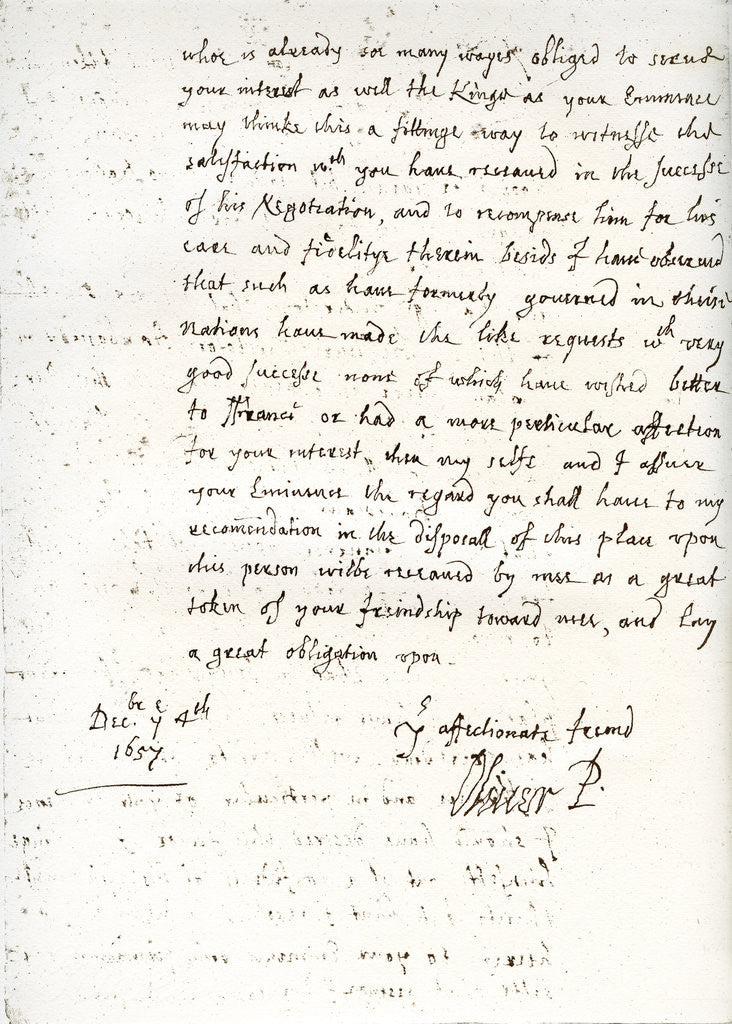 whoe is already soe many wayes obliged to serve
your interest as well the Kings as your Eminence
may thinke this a fittinge way to witnesse the
satisfaction wth you have receaved in the successe
of his Negotiation, and to recompense him for his
care and fidelitye therein besids I have observed
that such as have formerly governed in theise
Nations have made the like requests wth very
good successe none of which have wished better
to Ffrance or had a more perticular affection
for your interest then my selfe and I assuer
your Eminence the regard you shall have to my
recomendation in the disposall of this place upon
this person wilbe receaved by mee as a great
token of your freindship toward mee, and lay
a great obligation upon
Decbr ye 4th
1657
Yr affectionate freind
Oliver P.